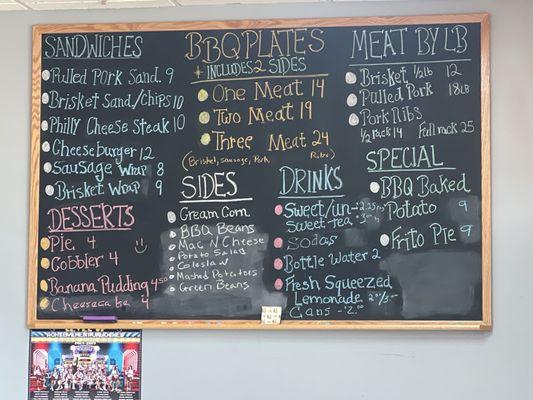 SANDWICHES
Pulled Pork Sand. 9
Brisket Sand/chips 10
Philly Cheese Steak 10
Cheeseburger 12
Sausage Wrap 8
Brisket Wrap 9
DESSERTS
Pie 4
Cobbler 4
Banana Pudding 4.50
Cheesecake 4
BBQ PLATES
INCLUDES 2 SIDES
One Meat 14
Two Meat 19
Three Meat 24
(Brisket, Sausage, Pork Ribs)
SIDES
Cream Corn
BBQ Beans
Mac N Cheese
Potato Salad
Coleslaw
Mashed Potatoes
Green Beans
DRINKS
Sweet/un-
Sweet-tea
Sodas
Bottle Water 2
Fresh Squeezed
Lemonade
Cans -2.00
MEAT BY LB
Brisket 1/2lb 12
Pulled Pork 18LB
Pork Ribs
1/2 rack 14 Full rack 25
SPECIAL
BBQ Baked
Potato 9
Frito Pie 9